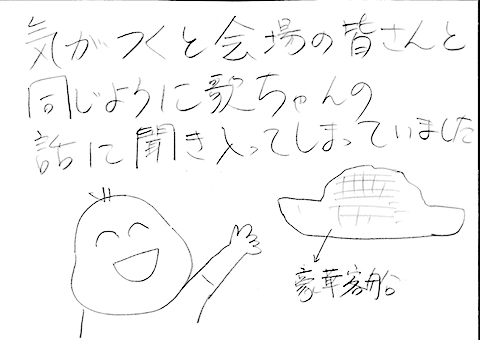 気がつくと会場の皆さんと
同じように歌ちゃんの
話に聞き入ってしまっていました
豪華客船